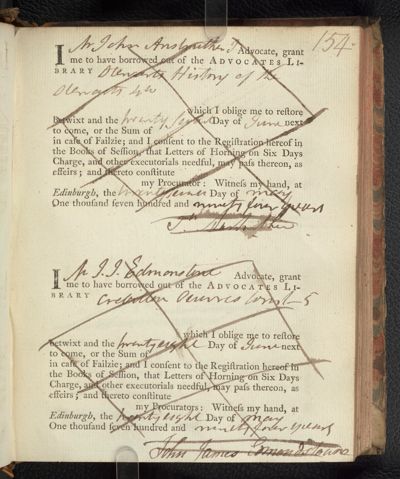 154
I Mr John Anstruther Advocate, grant
me to have borrowed out of the ADVOCATES LI-
BRARY History of the
which I oblige me to reſtore
Betwixt and the twenty Day of June next
to come, or the Sum of
in caſe of Failzie; and I conſent to the Regiſtration hereof in
the Books of Seſſion, that Letters of Horning on Six Days
Charge, and other executorials needful, may paſs thereon, as
effeirs; and thereto conſtitute
my Procurator: Witneſs my hand, at
Edinburgh, the Day of may
One thouſand ſeven hundred and ninety four years
I Mr J. J. Edmonstone Advocate, grant
me to have borrowed out of the ADVOCATES LI-
BRARY Oeuvres 5
which I oblige me to reſtore
betwixt and the twenty eight Day of June next
to come, or the Sum of
in caſe of Failzie; and I conſent to the Regiſtration hereof in
the Books of Seſſion, that Letters of Horning on Six Days
Charge, and other executorials needful, may paſs thereon, as
effeirs; and thereto conſtitute
my Procurators: Witneſs my hand, at
Edinburgh, the twenty eight Day of may
One thouſand ſeven hundred and ninety four years
John James Edmonstoune